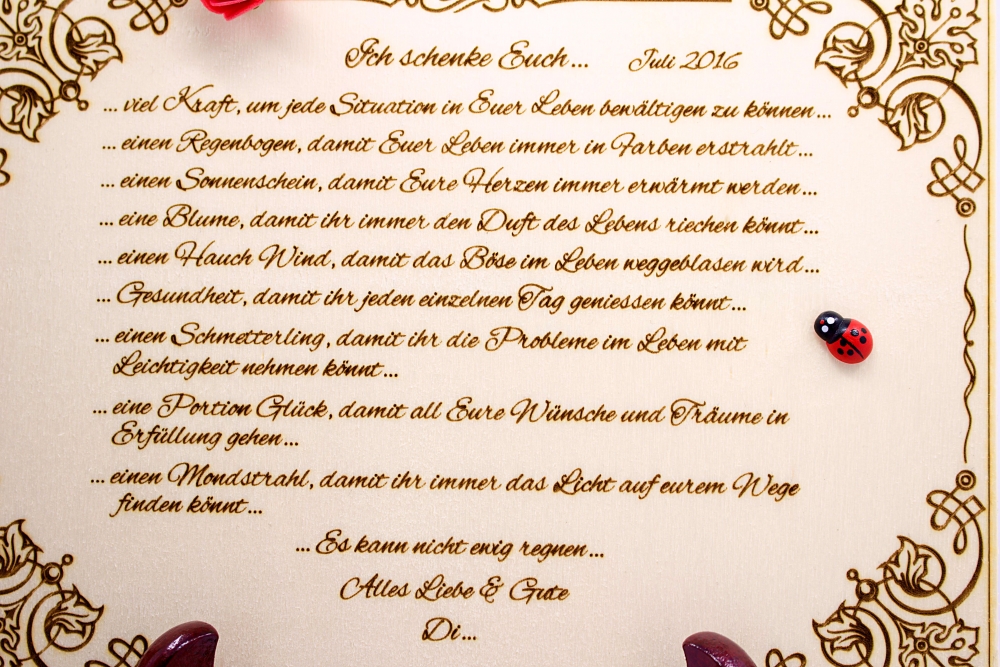 Ich schenke Euch... Juli 2016
... viel Kraft, um jede Situation in Euer Leben bewältigen zu können...
... einen Regenbogen, damit Euer Leben immer in Farben erstrahlt...
... einen Sonnenschein, damit Eure Herzen immer erwärmt werden...
... eine Blume, damit ihr immer den Duft des Lebens riechen könnt...
... einen Hauch Wind, damit das Böse im Leben weggeblasen wird...
... Gesundheit, damit ihr jeden einzelnen Tag geniessen könnt...
... einen Schmetterling, damit ihr die Probleme im Leben mit
Leichtigkeit nehmen könnt...
... eine Portion Glück, damit all Eure Wünsche und Träume in
Erfüllung gehen...
... einen Mondstrahl, damit ihr immer das Licht auf eurem Wege
finden könnt...
... Es kann nicht ewig regnen...
Alles Liebe & Gute
Di...